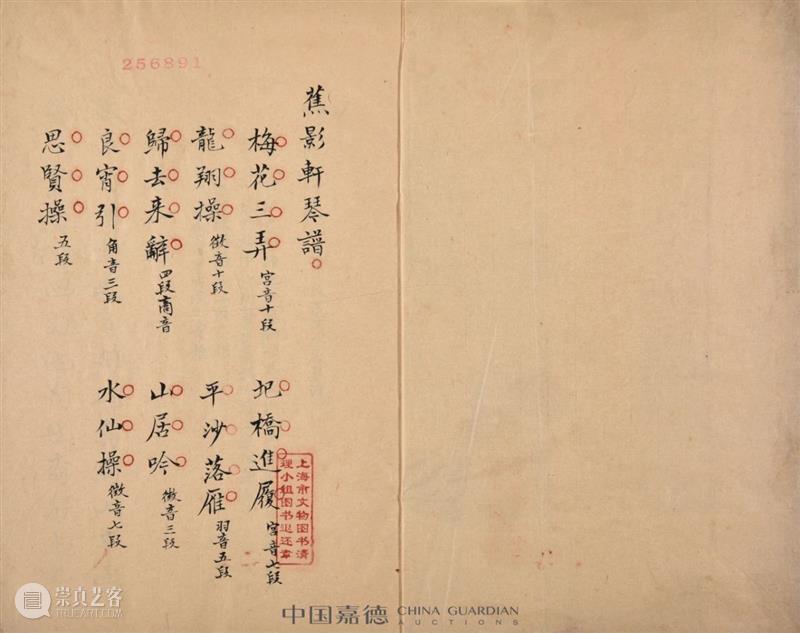 256891
蕉影軒琴譜
梅花三弄 宮音十段
圯橋進履 宮音七段
龍翔操 徵音十段
平沙落雁 羽音五段
歸去来辭 四段商音
山居吟 徵音三段
良宵引 角音三段
水仙操 徵音七段
思賢操 五段
上海市文物图书清
理小组图书退还章
崇真艺客
中国嘉德 CHINA GUARDIAN
AUCTIONS